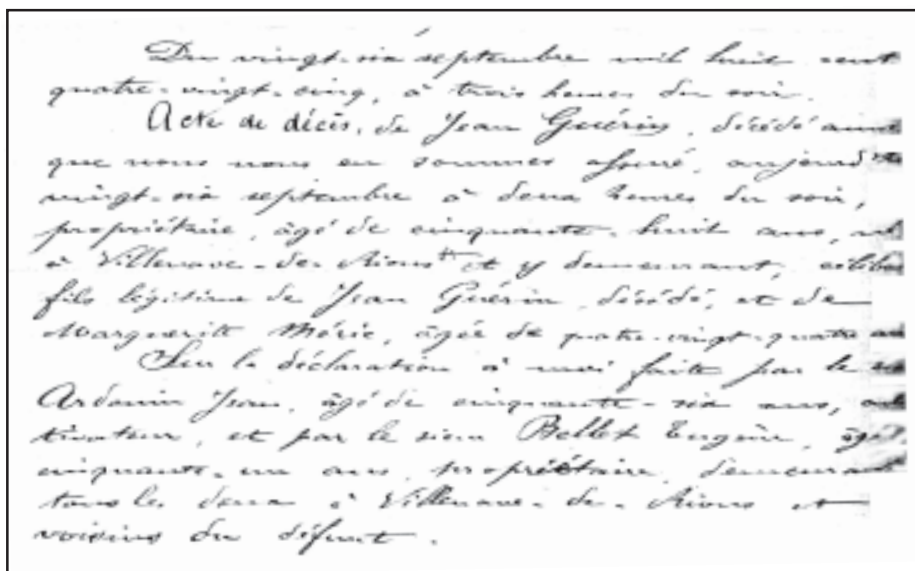 Du vingt-six septembre mil huit cent
quatre-vingt-cinq, à trois heures du soir.
Acte de décès, de Jean Guérin, décédé ainsi
que nous nous en sommes assuré, aujourd'hui
vingt-six septembre à deux heures du soir,
propriétaire, âgé de cinquante-huit ans, né
à Villenave-de-Rions et y demeurant, céliba
fils légitime de Jean Guérin, décédé, et de
Marguerite Méric, âgée de quatre-vingt-quatre ans
Sur la déclaration à moi faite par le
Ardouin Jean, âgé de cinquante-six ans, cul
tivateur, et par le sieur Bellet Eugène, âgé
cinquante-un ans, propriétaire, demeurant
tous les deux à Villenave-de-Rions et
voisins du défunt.